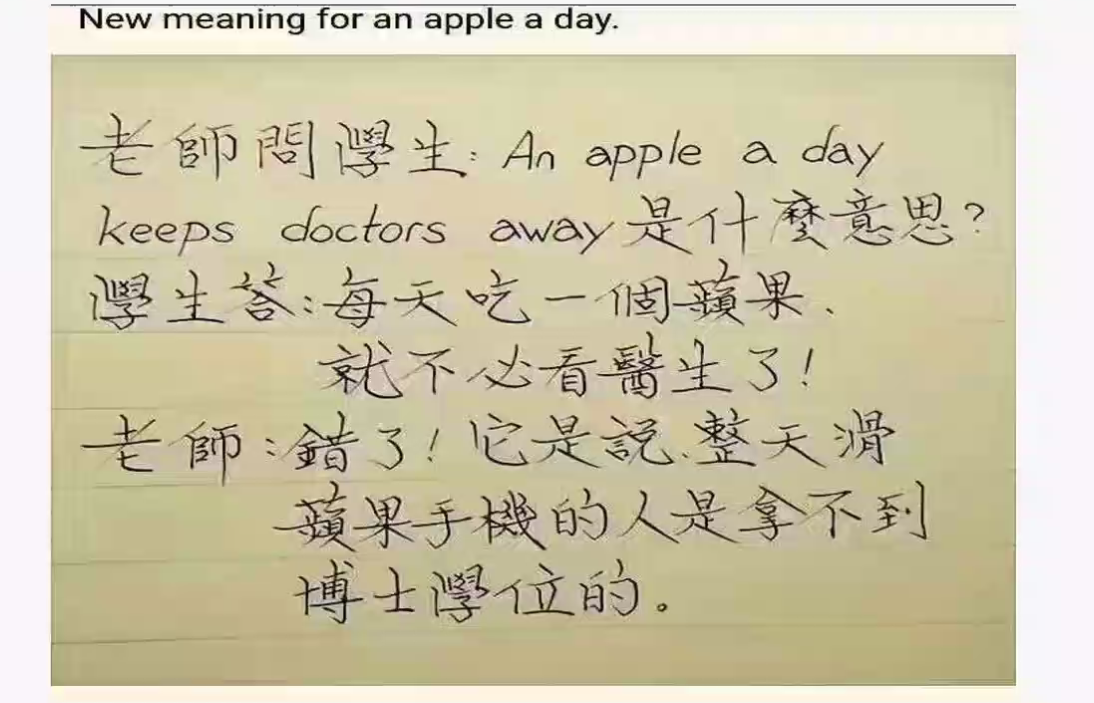 New meaning for an apple a day.
老師問學生: An apple a day
keeps doctors away 是什麼意思?
學生答:每天吃一個蘋果、
就不必看醫生了!
老師:錯了!它是說、整天滑
蘋果手機的人是拿不到
博士學位的。